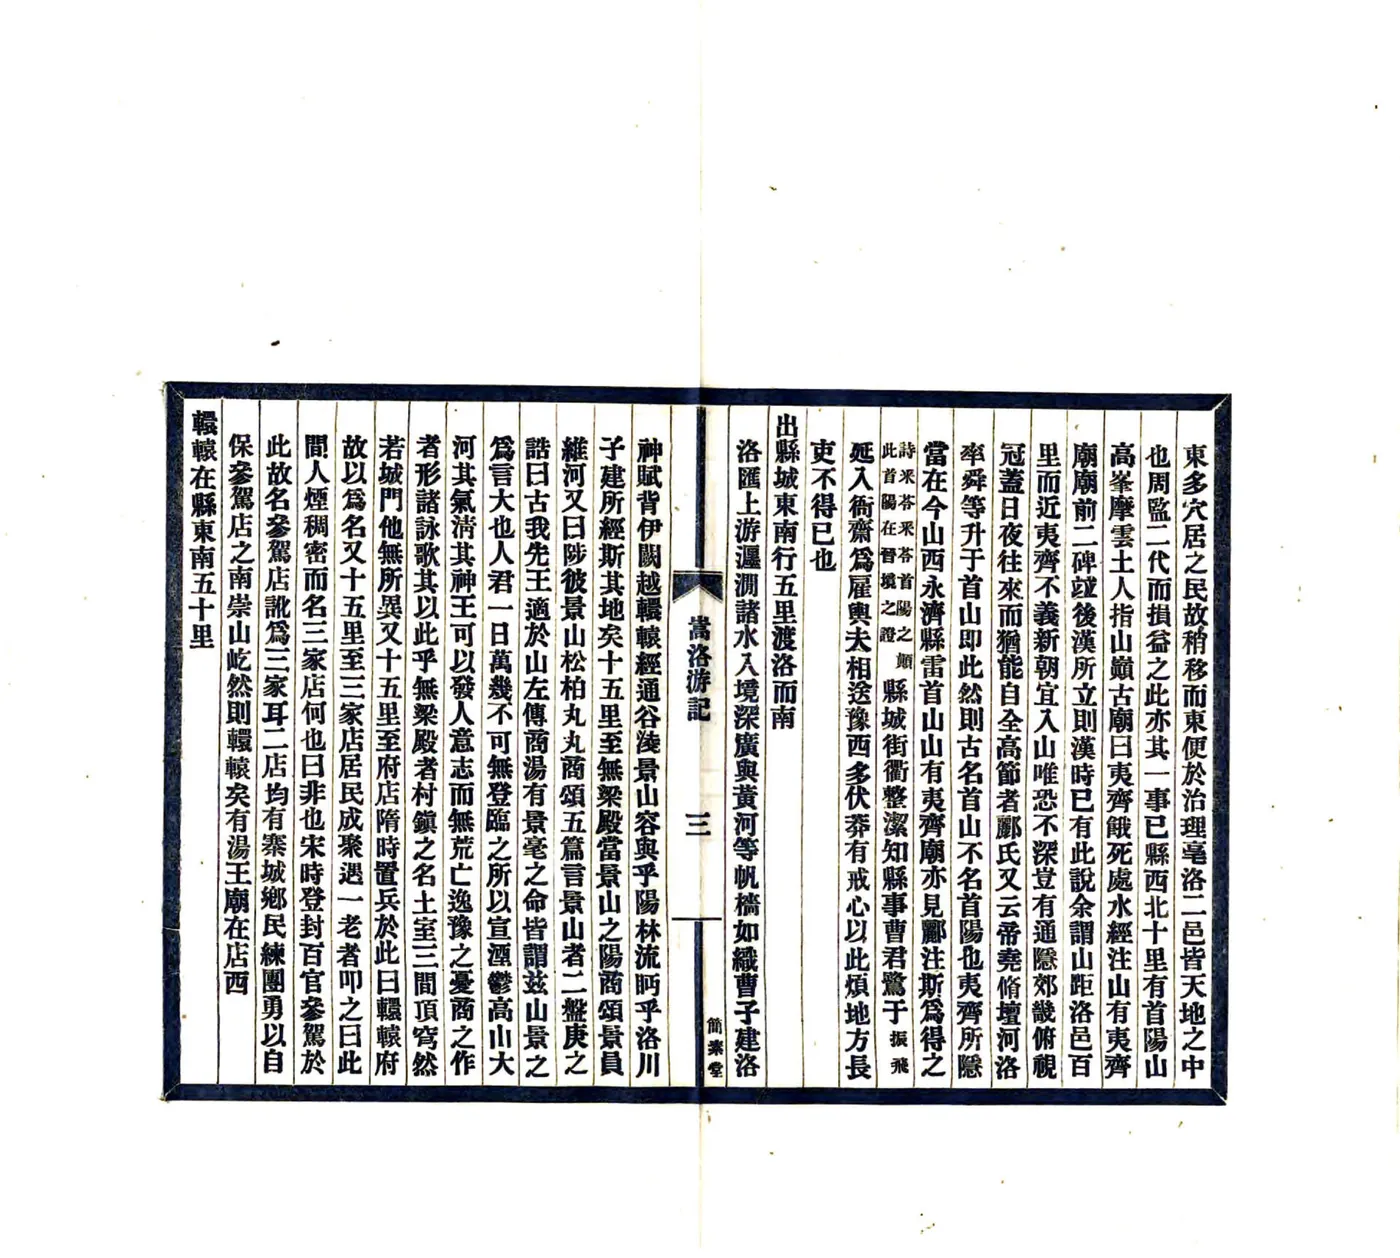 東多穴居之民故稍移而東便於治理亳洛二邑皆天地之中
也周監二代而損益之此亦其一事已縣西北十里有首陽山
高峯摩雲土人指山巔古廟曰夷齊餓死處水經注山有夷齊
廟廟前二碑竝後漢所立則漢時已有此說余謂山距洛邑百
里而近夷齊不義新朝宜入山唯恐不深豈有通隱郊畿俯視
冠蓋日夜往來而猶能自全高節者酈氏又云帝堯脩壇河洛
率舜等升于首山卽此然則古名首山不名首陽也夷齊所隱
當在今山西永濟縣雷首山山有夷齊廟亦見酈注斯爲得之
詩采苓采苓首陽之顚
此首陽在晉境之證
縣城街衢整潔知縣事曹君驚于振飛
延入衙齋爲雇輿夫相送豫西多伏莽有戒心以此煩地方長
吏不得已也
出縣城東南行五里渡洛而南
洛匯上游瀍澗諸水入境深廣與黃河等帆檣如織曹子建洛
嵩洛游記
三
簡素堂
神賦背伊闕越轘轅經通谷淩景山容與乎陽林流眄乎洛川
子建所經斯其地矣十五里至無梁殿當景山之陽商頌景員
維河又曰陟彼景山松柏丸丸商頌五篇言景山者二盤庚之
誥曰古我先王適於山左傳商湯有景亳之命皆謂茲山景之
爲言大也人君一日萬幾不可無登臨之所以宣湮鬱高山大
河其氣淸其神王可以發人意志而無荒亡逸豫之憂商之作
者形諸詠歌其以此乎無梁殿者村鎭之名土室三間頂穹然
若城門他無所異又十五里至府店隋時置兵於此曰轘轅府
故以爲名又十五里至三家店居民成聚遇一老者叩之曰此
間人煙稠密而名三家店何也曰非也宋時登封百官參駕於
此故名參駕店訛爲三家耳二店均有寨城鄉民練團勇以自
保參駕店之南崇山屹然則轘轅矣有湯王廟在店西
轘轅在縣東南五十里